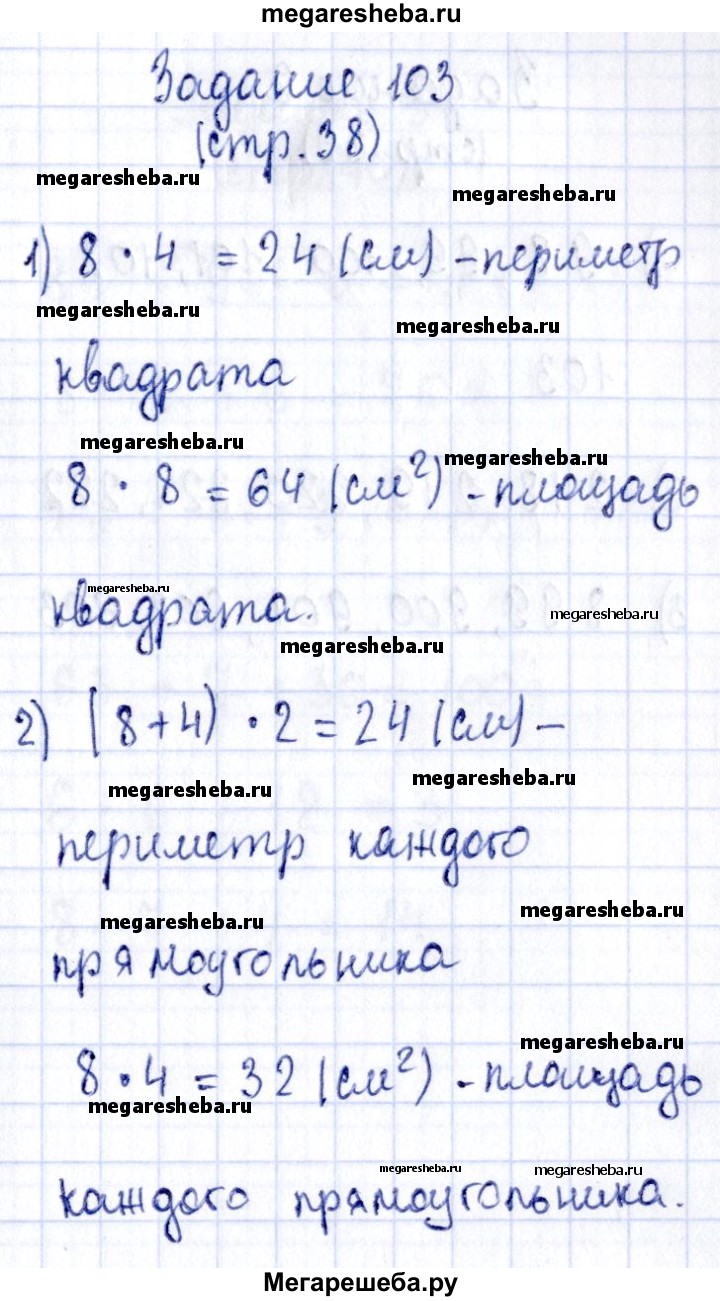 megaresheba.ru
Задание 103
(стр. 38)
megaresheba.ru
megaresheba.ru
1) 8 · 4 = 24 (см) – периметр
megaresheba.ru
megaresheba.ru
квадрата
megaresheba.ru
megaresheba.ru
8 · 8 = 64 (см²) - площадь
megaresheba.ru
megaresheba.ru
квадрата.
megaresheba.ru
2) (8+4) · 2 = 24 (см) –
megaresheba.ru
megaresheba.ru
периметр каждого
megaresheba.ru
megaresheba.ru
прямоугольника
megaresheba.ru
8 · 4 = 32 (см²) - площадь
megaresheba.ru
megaresheba.ru
megaresheba.ru
каждого прямоугольника.
Мегарешеба.ру